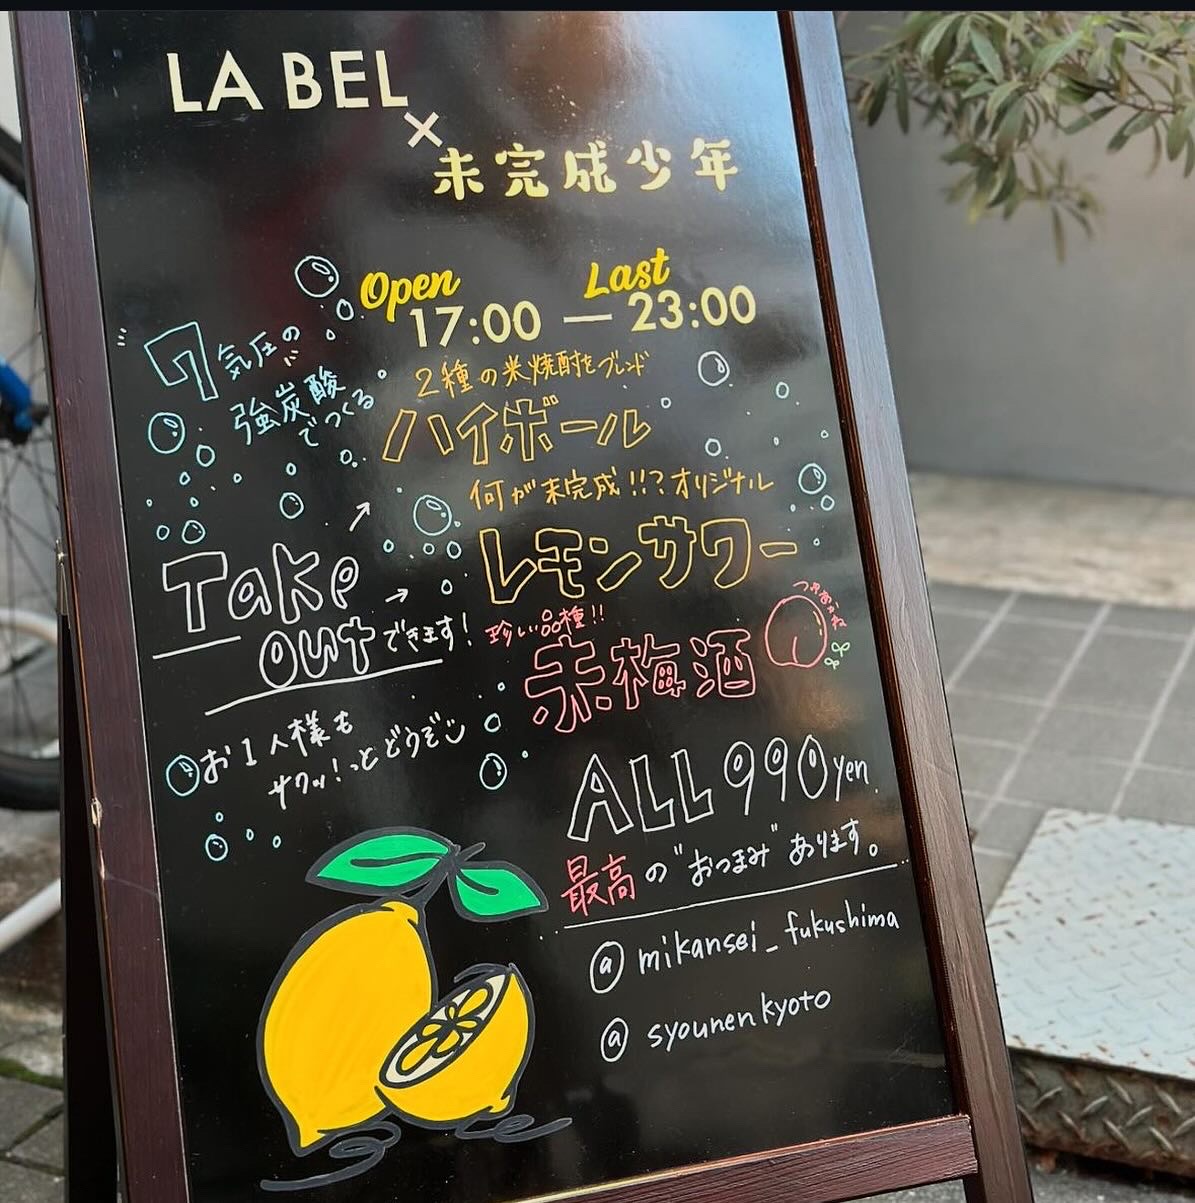 LA BEL
×
未完成少年
Open Last
17:00 — 23:00
7気圧の
強炭酸
でつくる
2種の米焼酎をブレンド
ハイボール
何が未完成!!?オリジナル
レモンサワー
Take
outできます!
珍しい品種!!
赤梅酒
お1人様も
サクッ!っとどうぞ
ALL 990yen
最高の"おつまみ"あります。
@mikansei_fukushima
@syounenkyoto